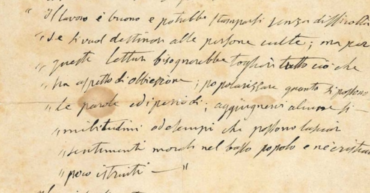 " Il lavoro è buono e potrebbe stamparsi senza difficoltà
" se si vuol destinarsi alle persone culte; ma per
" queste lettura bisognerebbe togliervi tutto ciò che
" ha aspetto di obbiezione; popolarizzare quanto si possono
" le parole ed i periodi; aggiungervi alcune si-
" militudini od esempi che possono lasciar
" sentimenti morali nel basso popolo e ne' cristiani
" poco istruiti — "